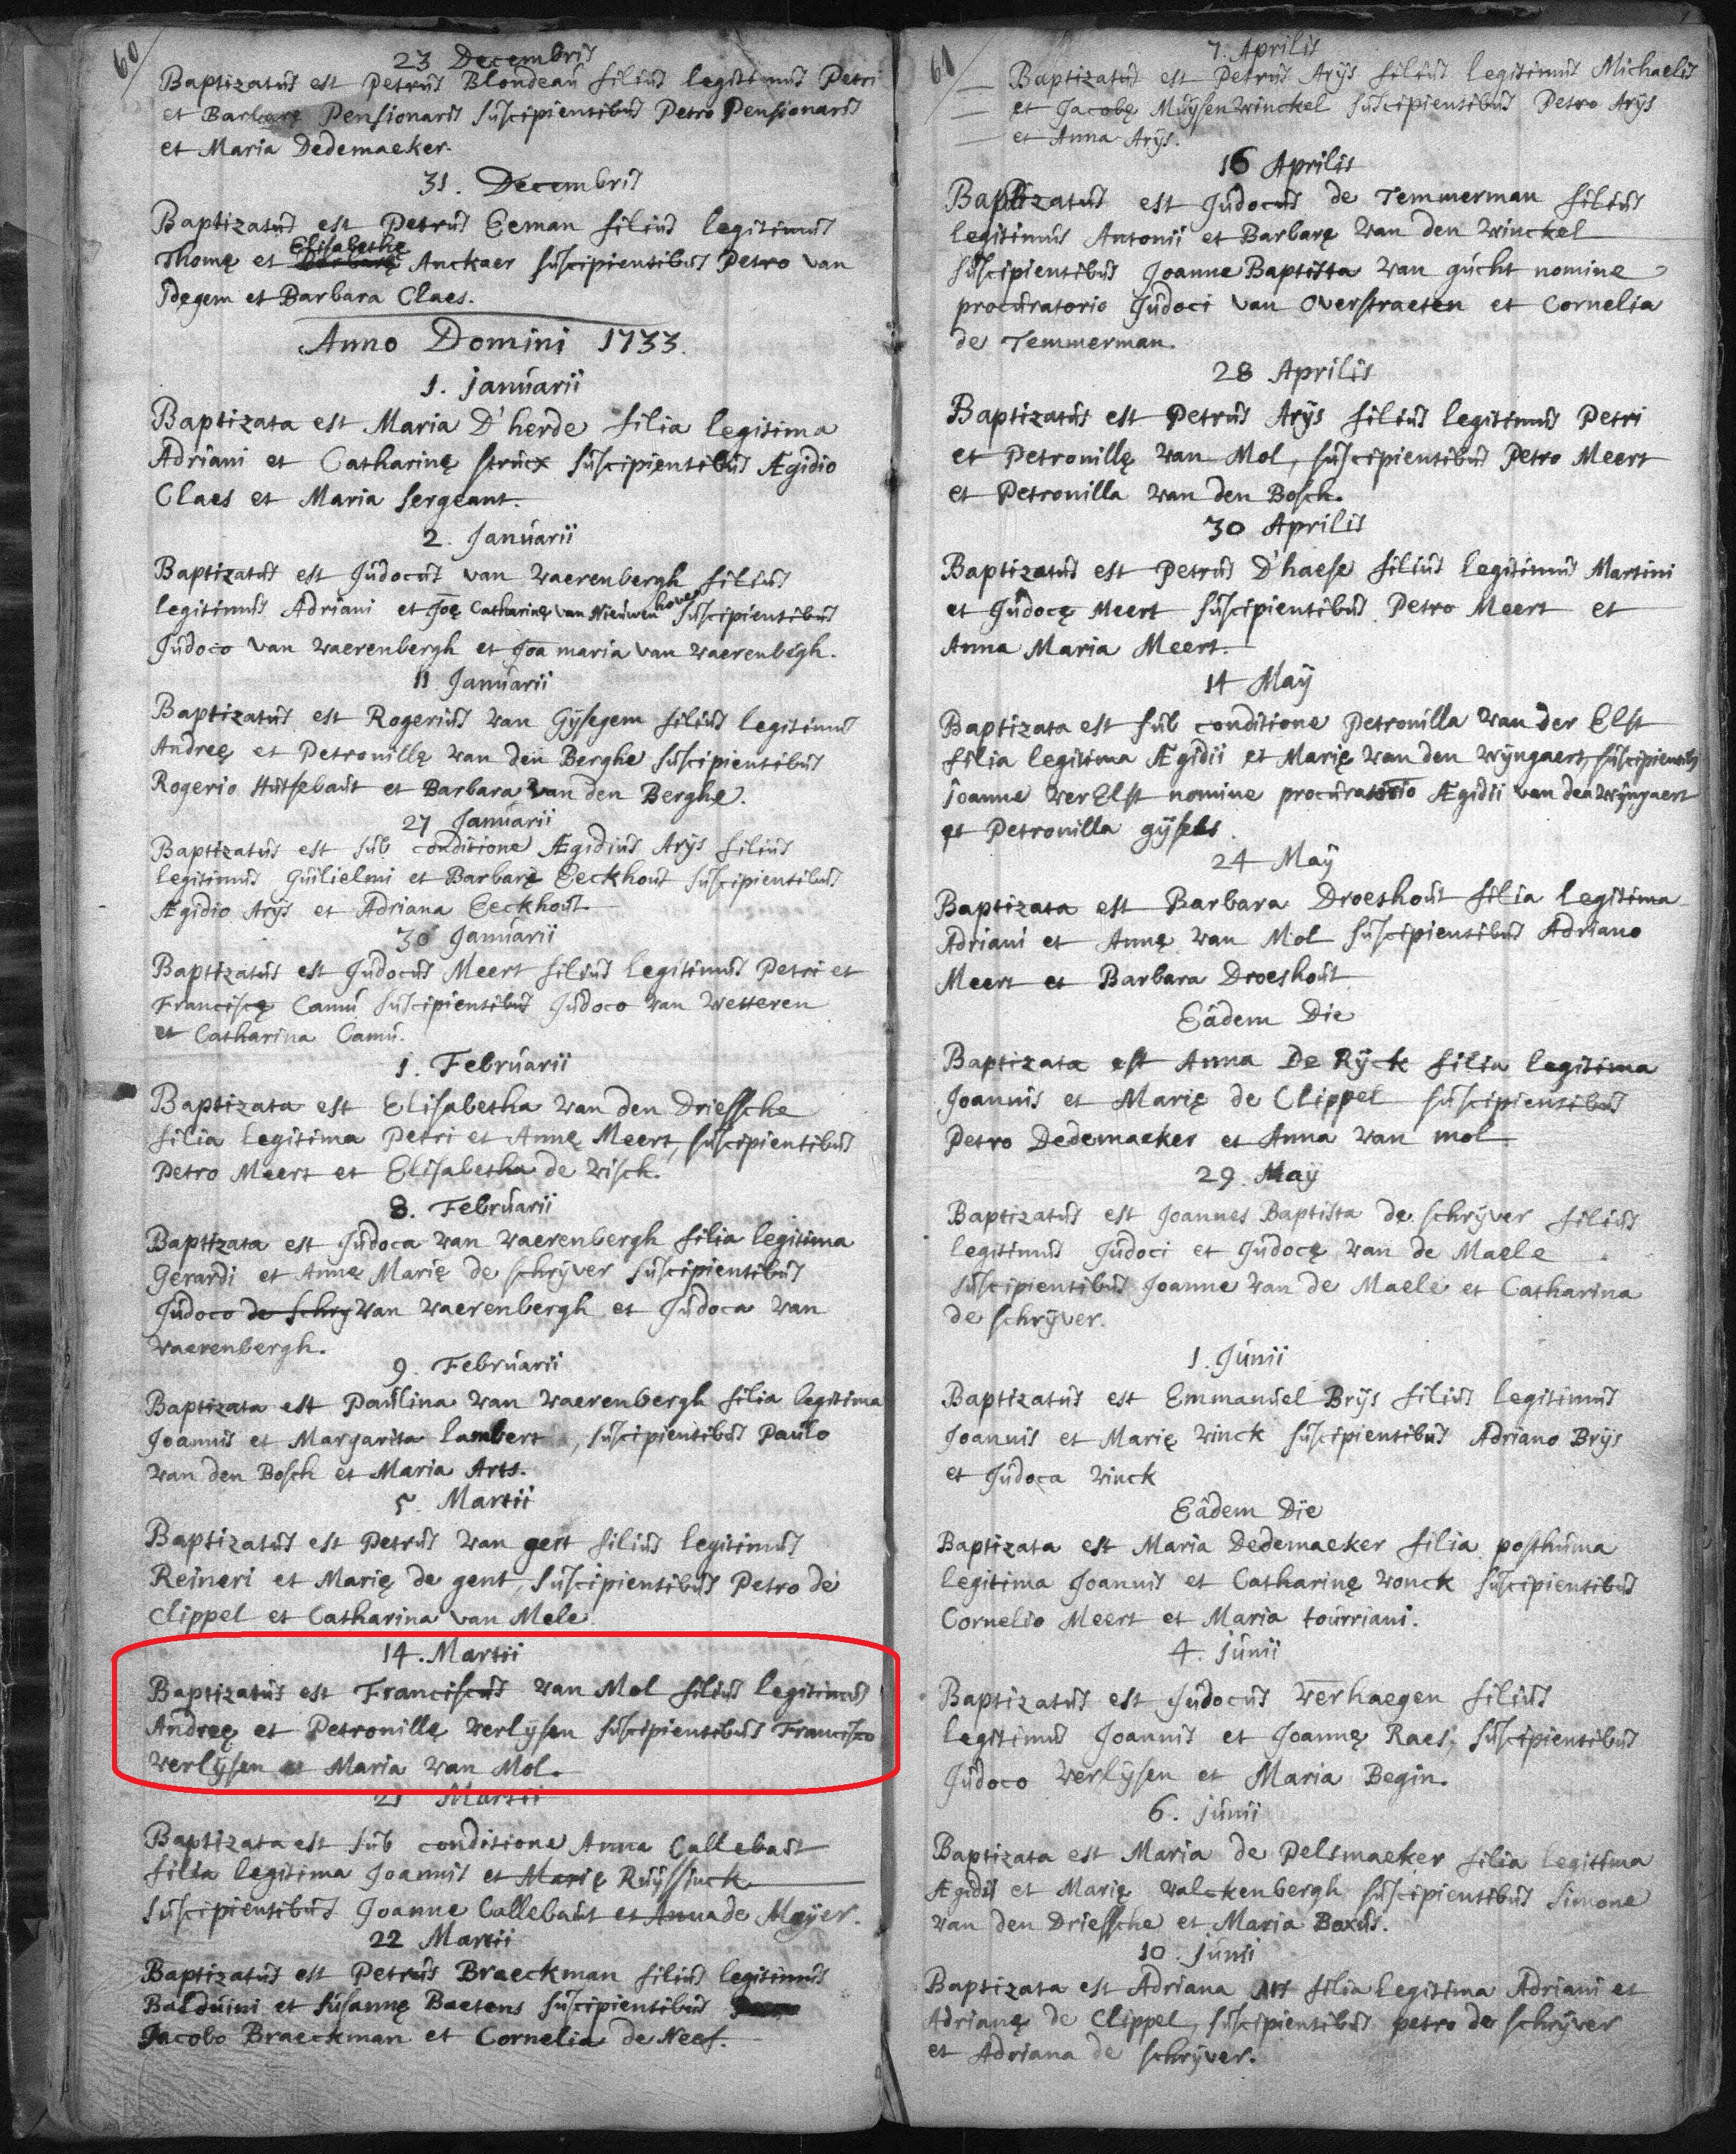 60
23 Decembris
Baptizatus est Petrus Blondeau filius legitimus Petri
et Barbarę Pensionaris suscipientibus Petro Pensionaris
et Maria Dedemaeker.
31. Decembris
Baptizatus est Petrus Eeman filius legitimus
Elisabethę
Thomę et Barbarę Anckaer suscipientibus Petro van
Idegem et Barbara Claes.
Anno Domini 1733.
1. januarii
Baptizata est Maria D'herde filia legitima
Adriani et Catharinę strucx suscipientibus Ægidio
Claes et Maria sergeant.
2. Januarii
Baptizatus est Judocus van waerenbergh filius
legitimus Adriani et Joę Catharinę van Nieuwenhoven suscipientibus
Judoco van waerenbergh et Joa maria van waerenbegh.
11 Januarii
Baptizatus est Rogerius van Gÿsegem filius legitimus
Andreę et Petronillę van den Berghe suscipientibus
Rogerio Hutsebaut et Barbara van den Berghe.
27 Januarii
Baptizatus est sub conditione Ægidius Arÿs filius
legitimus Guilielmi et Barbarę Eeckhout suscipientibus
Ægidio Arÿs et Adriana Eeckhout.
30 Januarii
Baptizatus est Judocus Meert filius legitimus Petri et
Franciscę Camu suscipientibus Judoco van wetteren
et Catharina Camu.
1. Februarii
Baptizata est Elisabetha van den Driessche
filia legitima Petri et Annę Meert, suscipientibus
Petro Meert et Elisabetha de visch.
8. Februarii
Baptizata est Judoca van waerenbergh filia legitima
Gerardi et Annę Marię de schrÿver suscipientibus
Judoco de schry van waerenbergh et Judoca van
waerenbergh.
9. Februarii
Baptizata est Paulina van waerenbergh filia legitima
Joannis et Margarita lambert, suscipientibus Paulo
van den Bosch et Maria Arts.
5. Martii
Baptizatus est Petrus van gert filius legitimus
Reineri et Marię de gent, suscipientibus Petro de
clippel et Catharina van Mele.
14. Martii
Baptizatus est Franciscus van Mol filius legitimus
Andreę et Petronillę verlÿsen suscipientibus Francisco
verlÿsen et Maria van Mol.
21 Martii
Baptizata est sub conditione Anna Callebaut
filia legitima Joannis et Marię Ruÿssinck
suscipientibus Joanne Callebaut et Anna de Meÿer.
22 Martii
Baptizatus est Petrus Braeckman filius legitimus
Balduini et susannę Baetens suscipientibus
Jacobo Braeckman et Cornelia de Neef.
61
7. Aprilis
Baptizatus est Petrus Arÿs filius legitimus Michaelis
et Jacobę Muÿsenwinckel suscipientibus Petro Arÿs
et Anna Arÿs.
16 Aprilis
Baptizatus est Judocus de Temmerman filius
legitimus Antonii et Barbarę van den winckel
suscipientibus Joanne Baptista van gucht nomine
procuratorio Judoci van Overstraeten et Cornelia
de Temmerman.
28 Aprilis
Baptizatus est Petrus Arÿs filius legitimus Petri
et Petronillę van Mol, suscipientibus Petro Meert
et Petronilla van den Bosch.
30 Aprilis
Baptizatus est Petrus D'haese filius legitimus Martini
et Judocę Meert suscipientibus Petro Meert et
Anna Maria Meert.
14 Maÿ
Baptizata est sub conditione Petronilla van der Elst
filia legitima Ægidii et Marię van den wÿngaert, suscipientib
Joanne verElst nomine procuratorio Ægidii van den wÿngaert
et Petronilla gÿsels.
24 Maÿ
Baptizata est Barbara Droeshout filia legitima
Adriani et Annę van Mol suscipientibus Adriano
Meert et Barbara Droeshout
Eâdem Die
Baptizata est Anna De Rÿck filia legitima
Joannis et Marię de Clippel suscipientibus
Petro Dedemaeker et Anna van mol
29. Maÿ
Baptizatus est Joannes Baptista de schrÿver filius
legitimus Judoci et Judocę van de Maele
suscipientibus Joanne van de Maele et Catharina
de schrÿver.
1. Junii
Baptizatus est Emmanuel Brÿs filius legitimus
Joannis et Marię vinck suscipientibus Adriano Brÿs
et Judoca vinck
Eâdem Die
Baptizata est Maria Dedemaeker filia posthuma
legitima Joannis et Catharinę vonck suscipientibus
Cornelio Meert et Maria tourriani.
4. junii
Baptizatus est Judocus verhaegen filius
legitimus Joannis et Joannę Raes, suscipientibus
Judoco verlÿsen et Maria Begin.
6. junii
Baptizata est Maria de Pelsmaeker filia legitima
Ægidii et Marię valckenbergh suscipientibus Simone
van den Driessche et Maria Boxus.
10. junii
Baptizata est Adriana Ars filia legitima Adriani et
Adrianę de Clippel, suscipientibus petro de schrÿver
et Adriana de schrÿver.